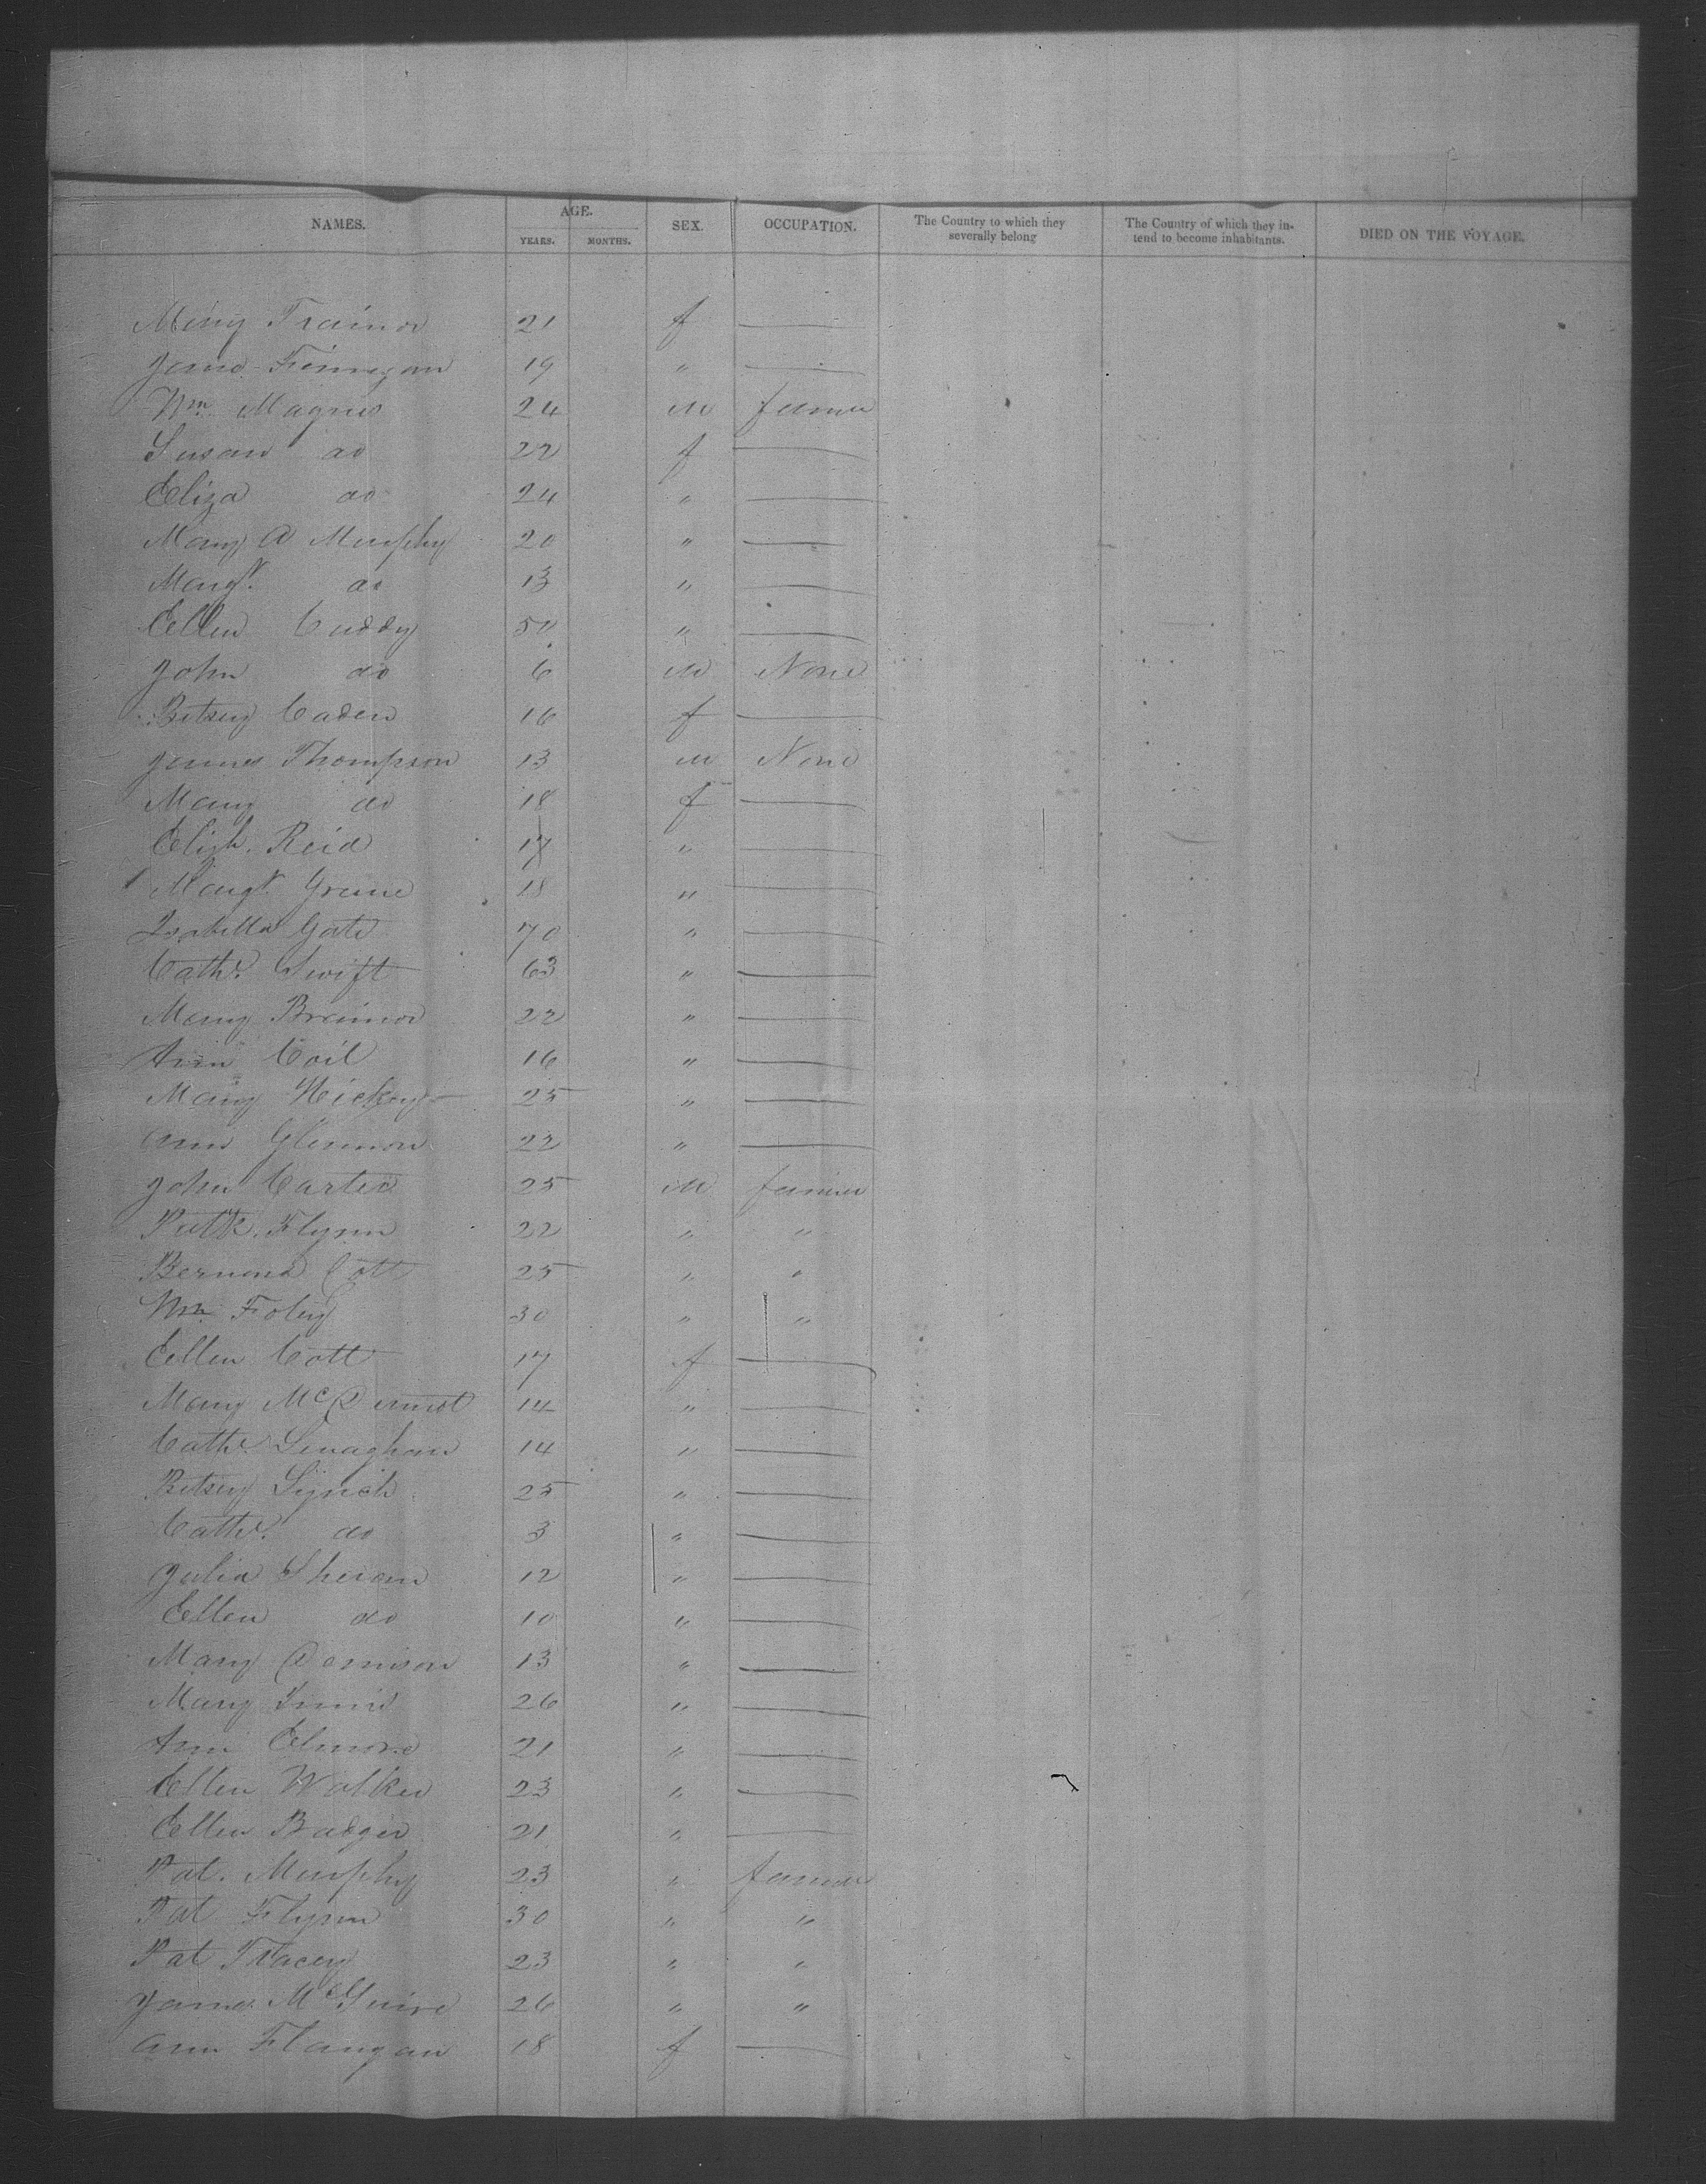 NAMES. AGE. YEARS. MONTHS. SEX. OCCUPATION. The Country to which they severally belong The Country of which they intend to become inhabitants. DIED ON THE VOYAGE.
Mary Trainor 21 f —
Jane Finnegan 19 " —
Wm Magnes 24 M farmer
Susan do 22 f —
Eliza do 24 " —
Mary A Murphy 20 " —
Margt. do 13 " —
Ellen Cuddy 50 " —
John do 6 M None
Betsey Caden 16 f —
James Thompson 13 M None
Mary do 18 f —
Elizh. Reid 17 " —
Margt. Grame 18 " —
Isabella Gate 70 " —
Cathe. Swift 63 " —
Mary Brainor 22 " —
Ann Coil 16 " —
Mary Hickey 25 " —
Ann Glennon 22 " —
John Carter 25 M farmer
Patk. Flynn 22 " "
Bernard Cott 25 " "
Wm Foley 30 " "
Ellen Cott 17 f —
Mary McDermot 14 " —
Cathe. Lenaghan 14 " —
Betsey Lynch 25 " —
Cathe. do 3 " —
Julia Sheran 12 " —
Ellen do 10 " —
Mary Dennison 13 " —
Mary 26 " —
Ann Elmore 21 " —
Ellen Walker 23 " —
Ellen Badger 21 " —
Pat. Murphy 23 " farmer
Pat Flynn 30 " "
Pat Tracey 23 " "
James McGuire 26 " "
Ann Flangan 18 f —